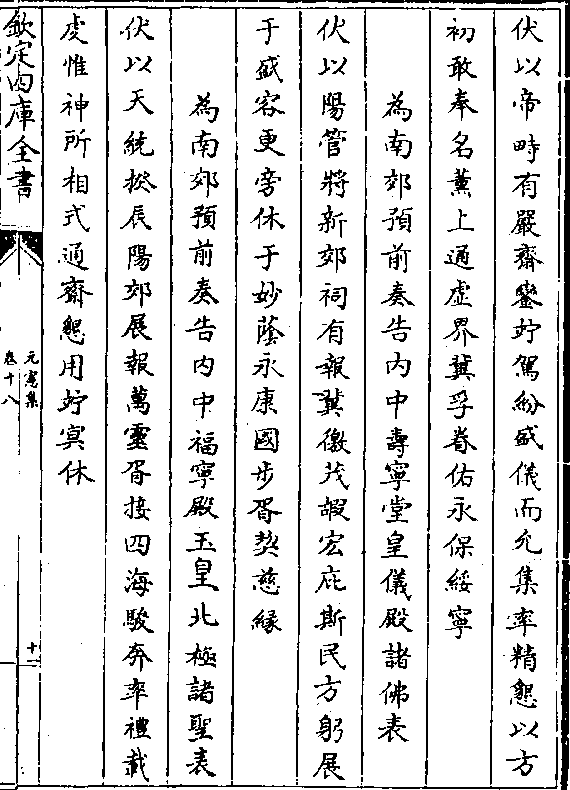 伏以帝畤有嚴齋鑾竚駕紛盛儀而允集率精懇以方
初敢奉名薰上通虛界冀孚眷佑永保綏寧
為南郊預前奏告内中壽寧堂皇儀殿諸佛表
伏以陽管將新郊祠有報冀徼茂嘏宏庇斯民方躬展
于盛容更旁休于妙蔭永康國步胥契慈縁
為南郊預前奏告内中福寧殿玉皇北極諸聖表
伏以天統撥辰陽郊展報萬靈胥接四海駿奔率禮載
虔惟神所相式通齋懇用竚㝠休
欽定四庫全書
元憲集
卷十八
十一